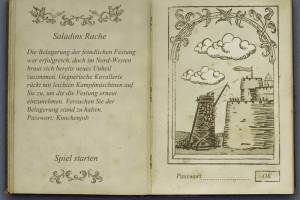 Saladins Rache
Die Belagerung der feindlichen Festung
war erfolgreich, doch im Nord-Westen
braut sich bereits neues Unheil
zusammen. Gegnerische Kavallerie
rückt mit leichten Kampfmaschinen auf
Sie zu, um die die Festung erneut
einzunehmen. Versuchen Sie der
Belagerung stand zu halten.
Passwort: Knochenjob
Spiel starten
Passwort
OK